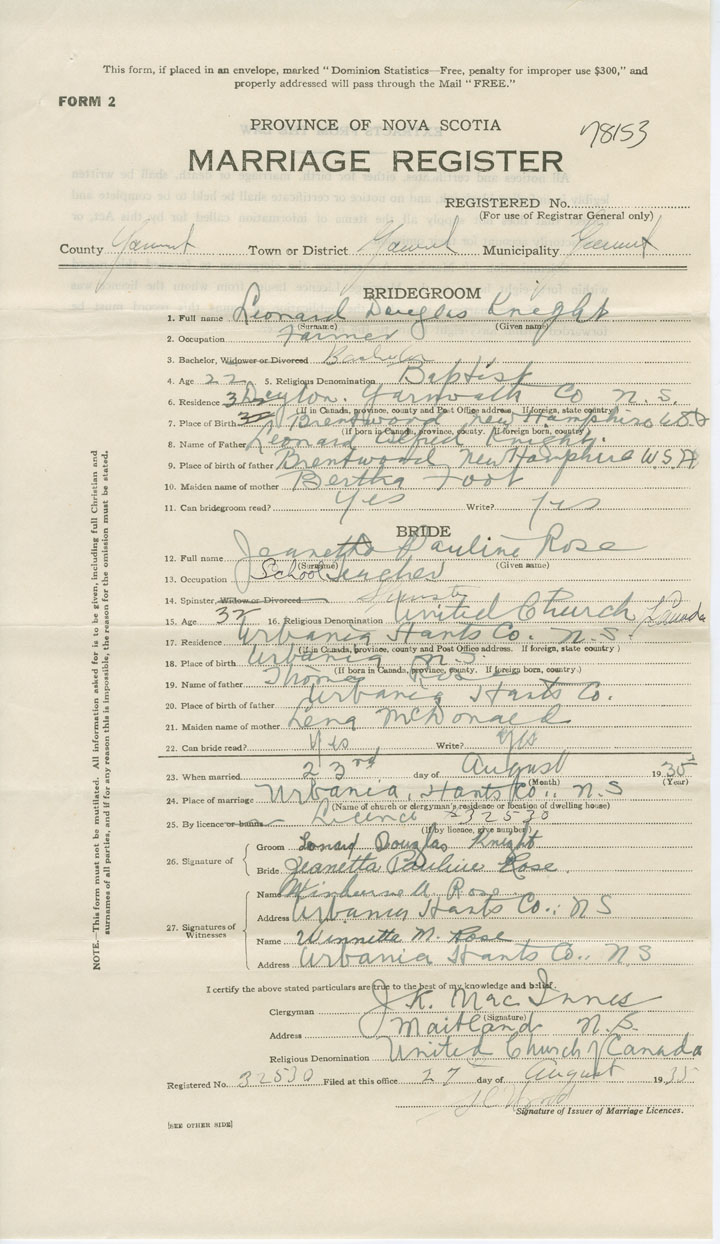 This form, if placed in an envelope, marked "Dominion Statistics—Free, penalty for improper use $300," and
properly addressed will pass through the Mail "FREE."
FORM 2
PROVINCE OF NOVA SCOTIA
78153
MARRIAGE REGISTER
REGISTERED No.
(For use of Registrar General only)
County Town or District Municipality
BRIDEGROOM
1. Full name Leonard Douglas Knight
(Surname) (Given name)
2. Occupation Farmer
3. Bachelor, Widower or Divorced Bachelor
4. Age 22 5. Religious Denomination Baptist
6. Residence Yarmouth Co N.S.
(If in Canada, province, county and Post Office address. If foreign, state country)
7. Place of Birth Brentwood New Hampshire U.S.A
(If born in Canada, province, county. If foreign born, country.)
8. Name of Father Leonard Alfred Knight.
9. Place of birth of father Brentwood New Hampshire U.S.A
10. Maiden name of mother Bertha Foot
11. Can bridegroom read? Yes Write? Yes
BRIDE
12. Full name Jeanetta Pauline Rose
(Surname) (Given name)
13. Occupation School Teacher
14. Spinster, Widow or Divorced Spinster
15. Age 32 16. Religious Denomination United Church Canada
17. Residence Urbania Hants Co. N.S.
(If in Canada, province, county and Post Office address. If foreign, state country)
18. Place of birth Urbania N.S.
(If born in Canada, province, county. If foreign born, country.)
19. Name of father Thomas Rose
20. Place of birth of father Urbania Hants Co.
21. Maiden name of mother Lena McDonald
22. Can bride read? Yes Write? Yes
23. When married 23rd day of August 1935
(Month) (Year)
24. Place of marriage Urbania, Hants Co., N S
(Name of church or clergyman's residence or location of dwelling house)
25. By licence or banns Licence 32530
(If by licence, give number)
26. Signature of
Groom Leonard Douglas Knight
Bride Jeanetta Pauline Rose.
27. Signatures of
Witnesses
Name A. Rose
Address Urbania Hants Co., N S
Name Winnetta M. Rose
Address Urbania Hants Co., N S
I certify the above stated particulars are true to the best of my knowledge and belief.
Clergyman J. K. MacInnes
(Signature)
Address Maitland N.S.
Religious Denomination United Church of Canada
Registered No. 32530 Filed at this office 27 day of August 1935
Signature of Issuer of Marriage Licences.
[SEE OTHER SIDE]
NOTE.—This form must not be mutilated. All information asked for is to be given, including full Christian and
surnames of all parties, and if for any reason this is impossible, the reason for the omission must be stated.